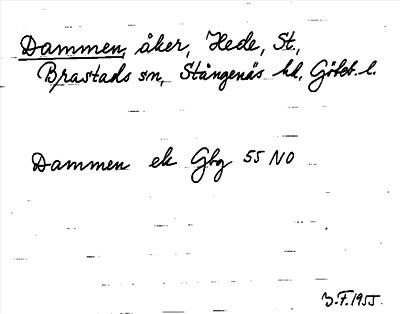 Dammen, åker, Hede, St.,
Brastads sn, Stångenäs hd, Göteb. l.
Dammen ek Gbg 55 NO
J.F. 1955.